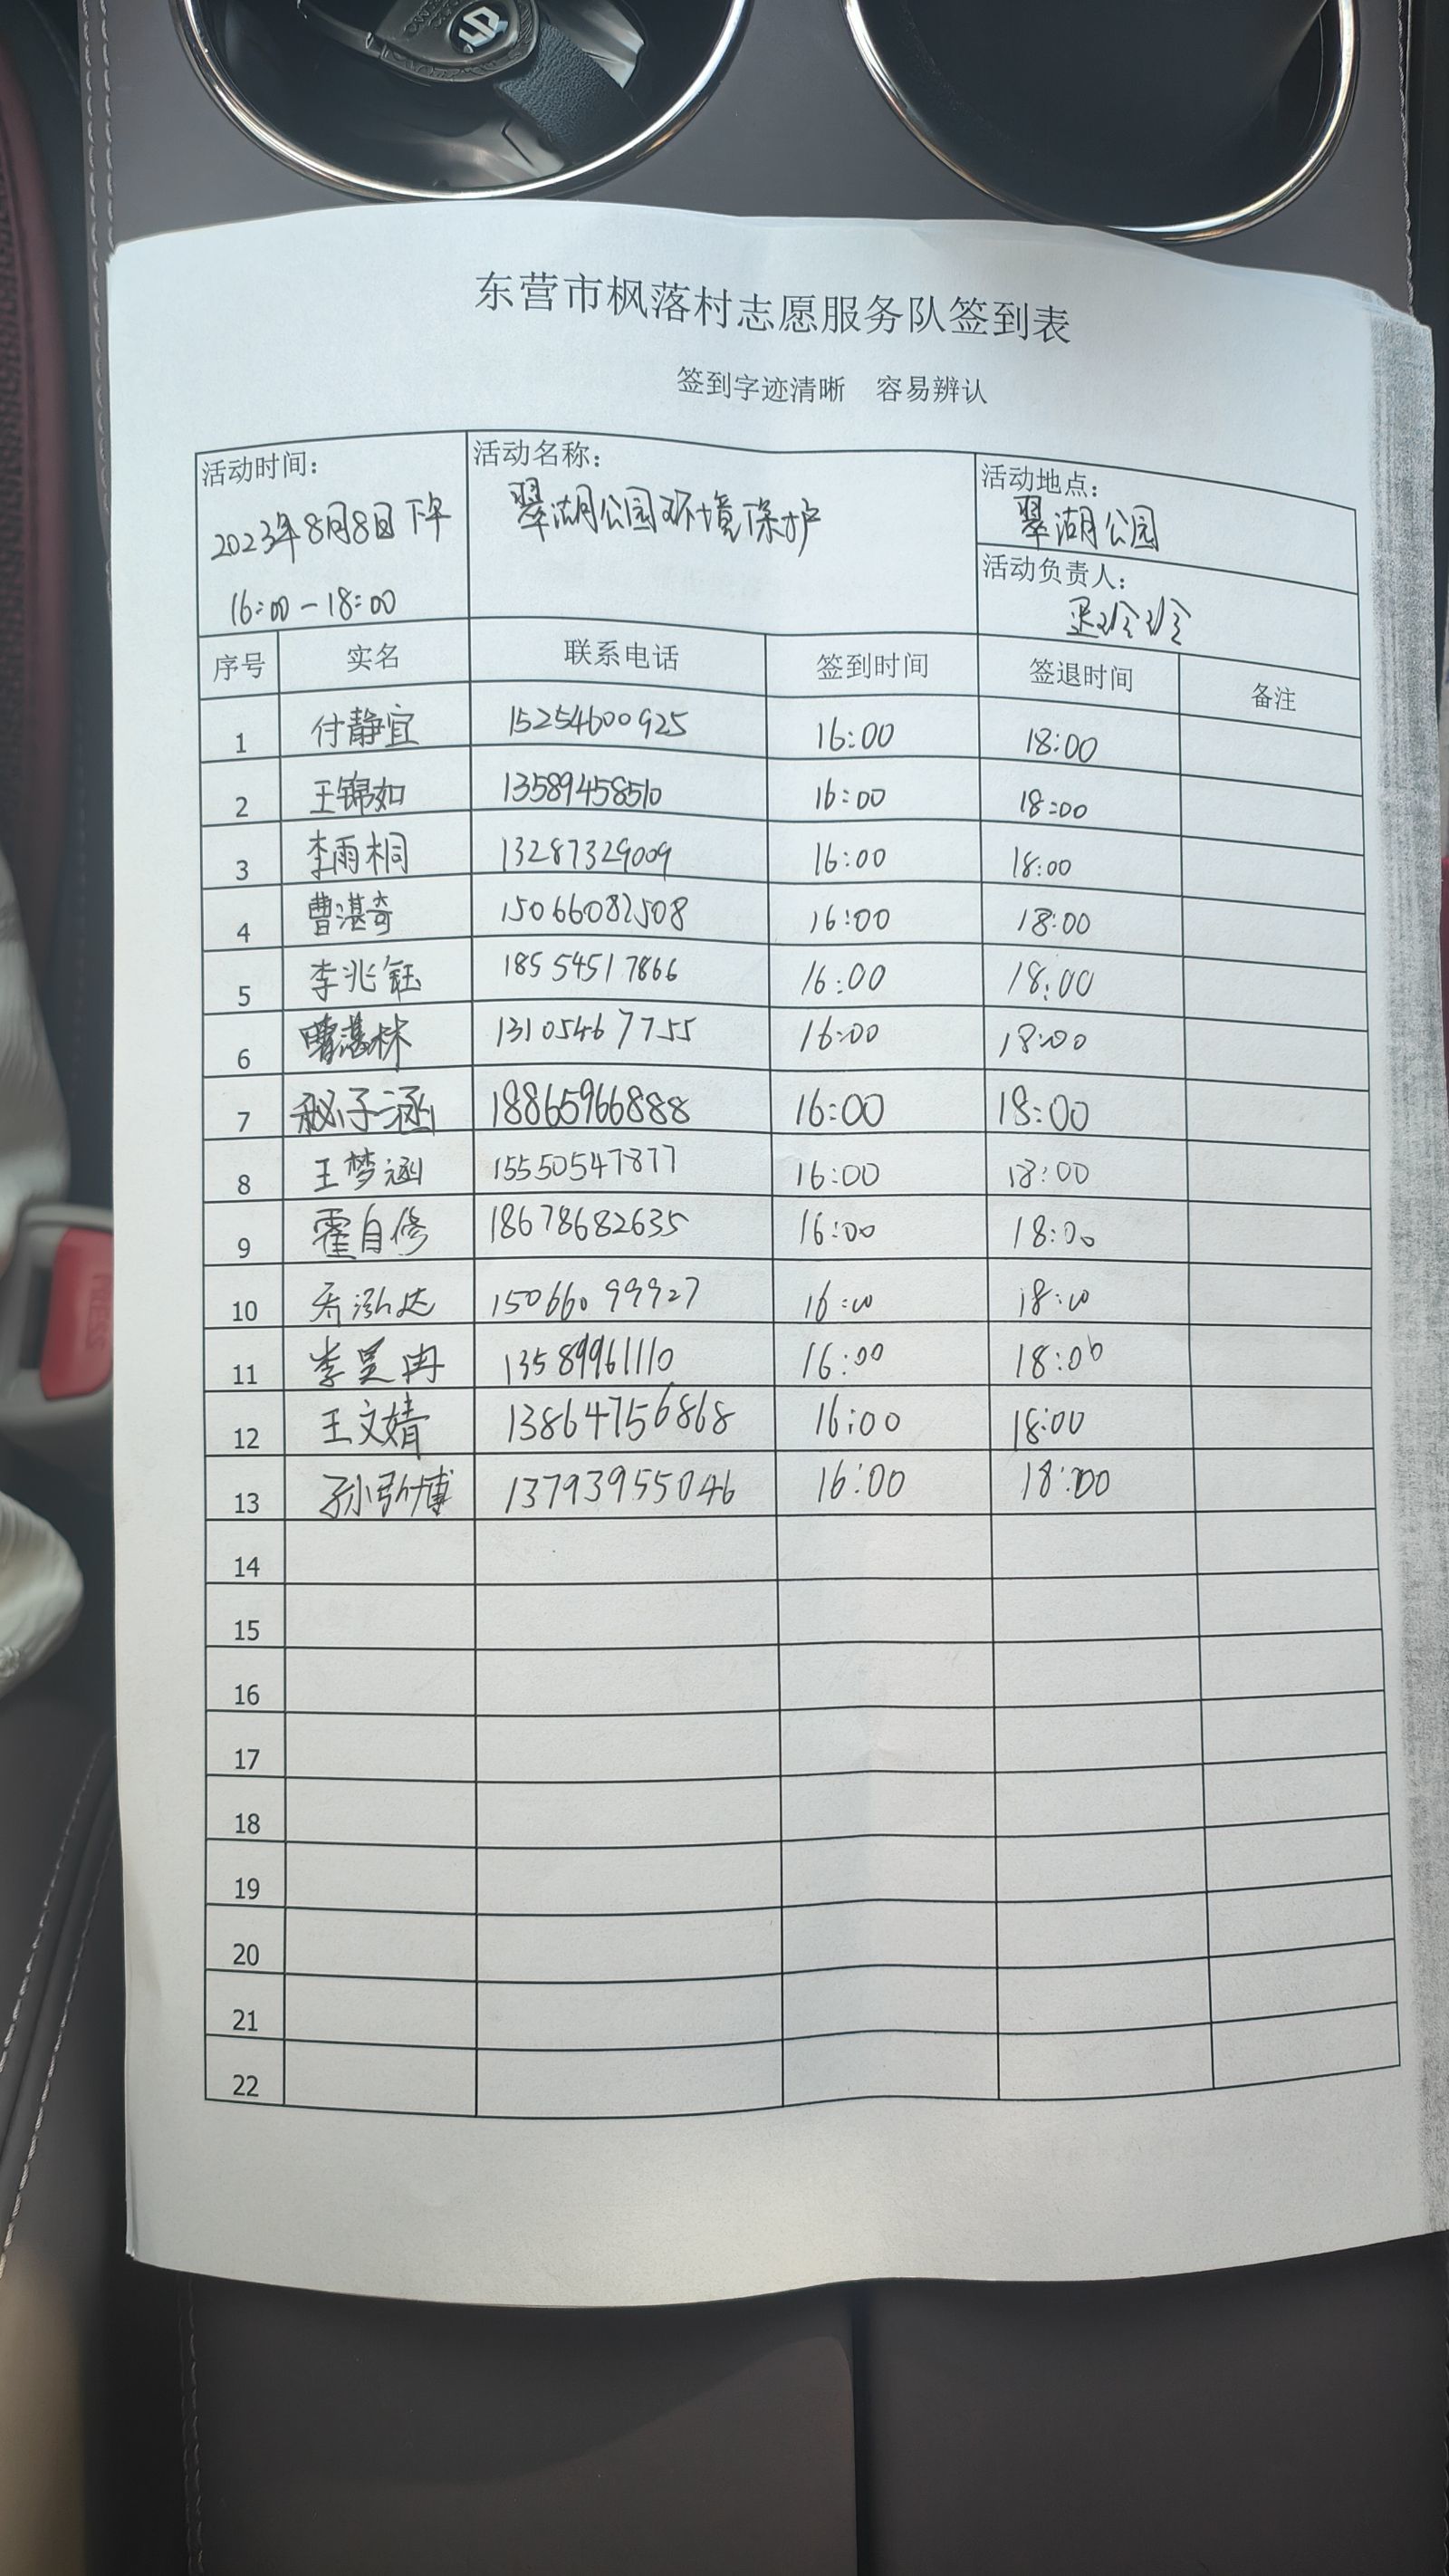 东营市枫落村志愿服务队签到表
签到字迹清晰 容易辨认
活动时间：
2023年8月8日下午
16:00-18:00
活动名称：
翠湖公园环境保护
活动地点：
翠湖公园
活动负责人：
玲玲
序号 实名 联系电话 签到时间 签退时间 备注
1 付静宜 15254600925 16:00 18:00
2 王锦如 13589458510 16:00 18:00
3 李雨桐 13287329009 16:00 18:00
4 曹湛奇 15066082508 16:00 18:00
5 李兆钰 18554517866 16:00 18:00
6 曹湛林 13105467755 16:00 18:00
7 秘子涵 18865966888 16:00 18:00
8 王梦涵 15550547877 16:00 18:00
9 霍自修 18678682635 16:00 18:00
10 乔泓达 15066099927 16:00 18:00
11 李昊冉 13589961110 16:00 18:00
12 王文婧 13864756868 16:00 18:00
13 孙弘博 13793955046 16:00 18:00
14
15
16
17
18
19
20
21
22
PRESS